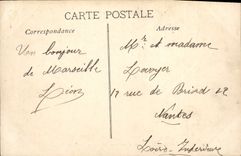 CARTE POSTALE
Correspondance
Adresse
Un bonjour
de Marseille
Léon
Mr et madame
17 rue de Briord
Nantes
Loire-Inférieure